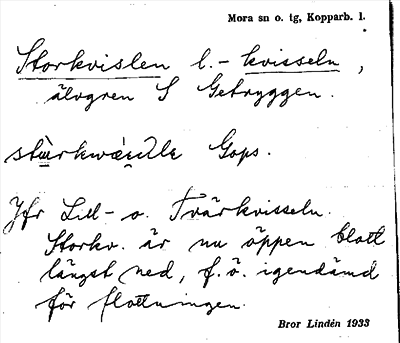 Mora sn o. tg, Kopparb. l.
Storkvislen l. -kvisseln,
älvgren S Getryggen.
Gops.
Jfr Lill- o. Tvärkvisseln.
Storkv. är nu öppen blott
längst ned, f. ö. igendämd
för flottningen.
Bror Lindén 1933